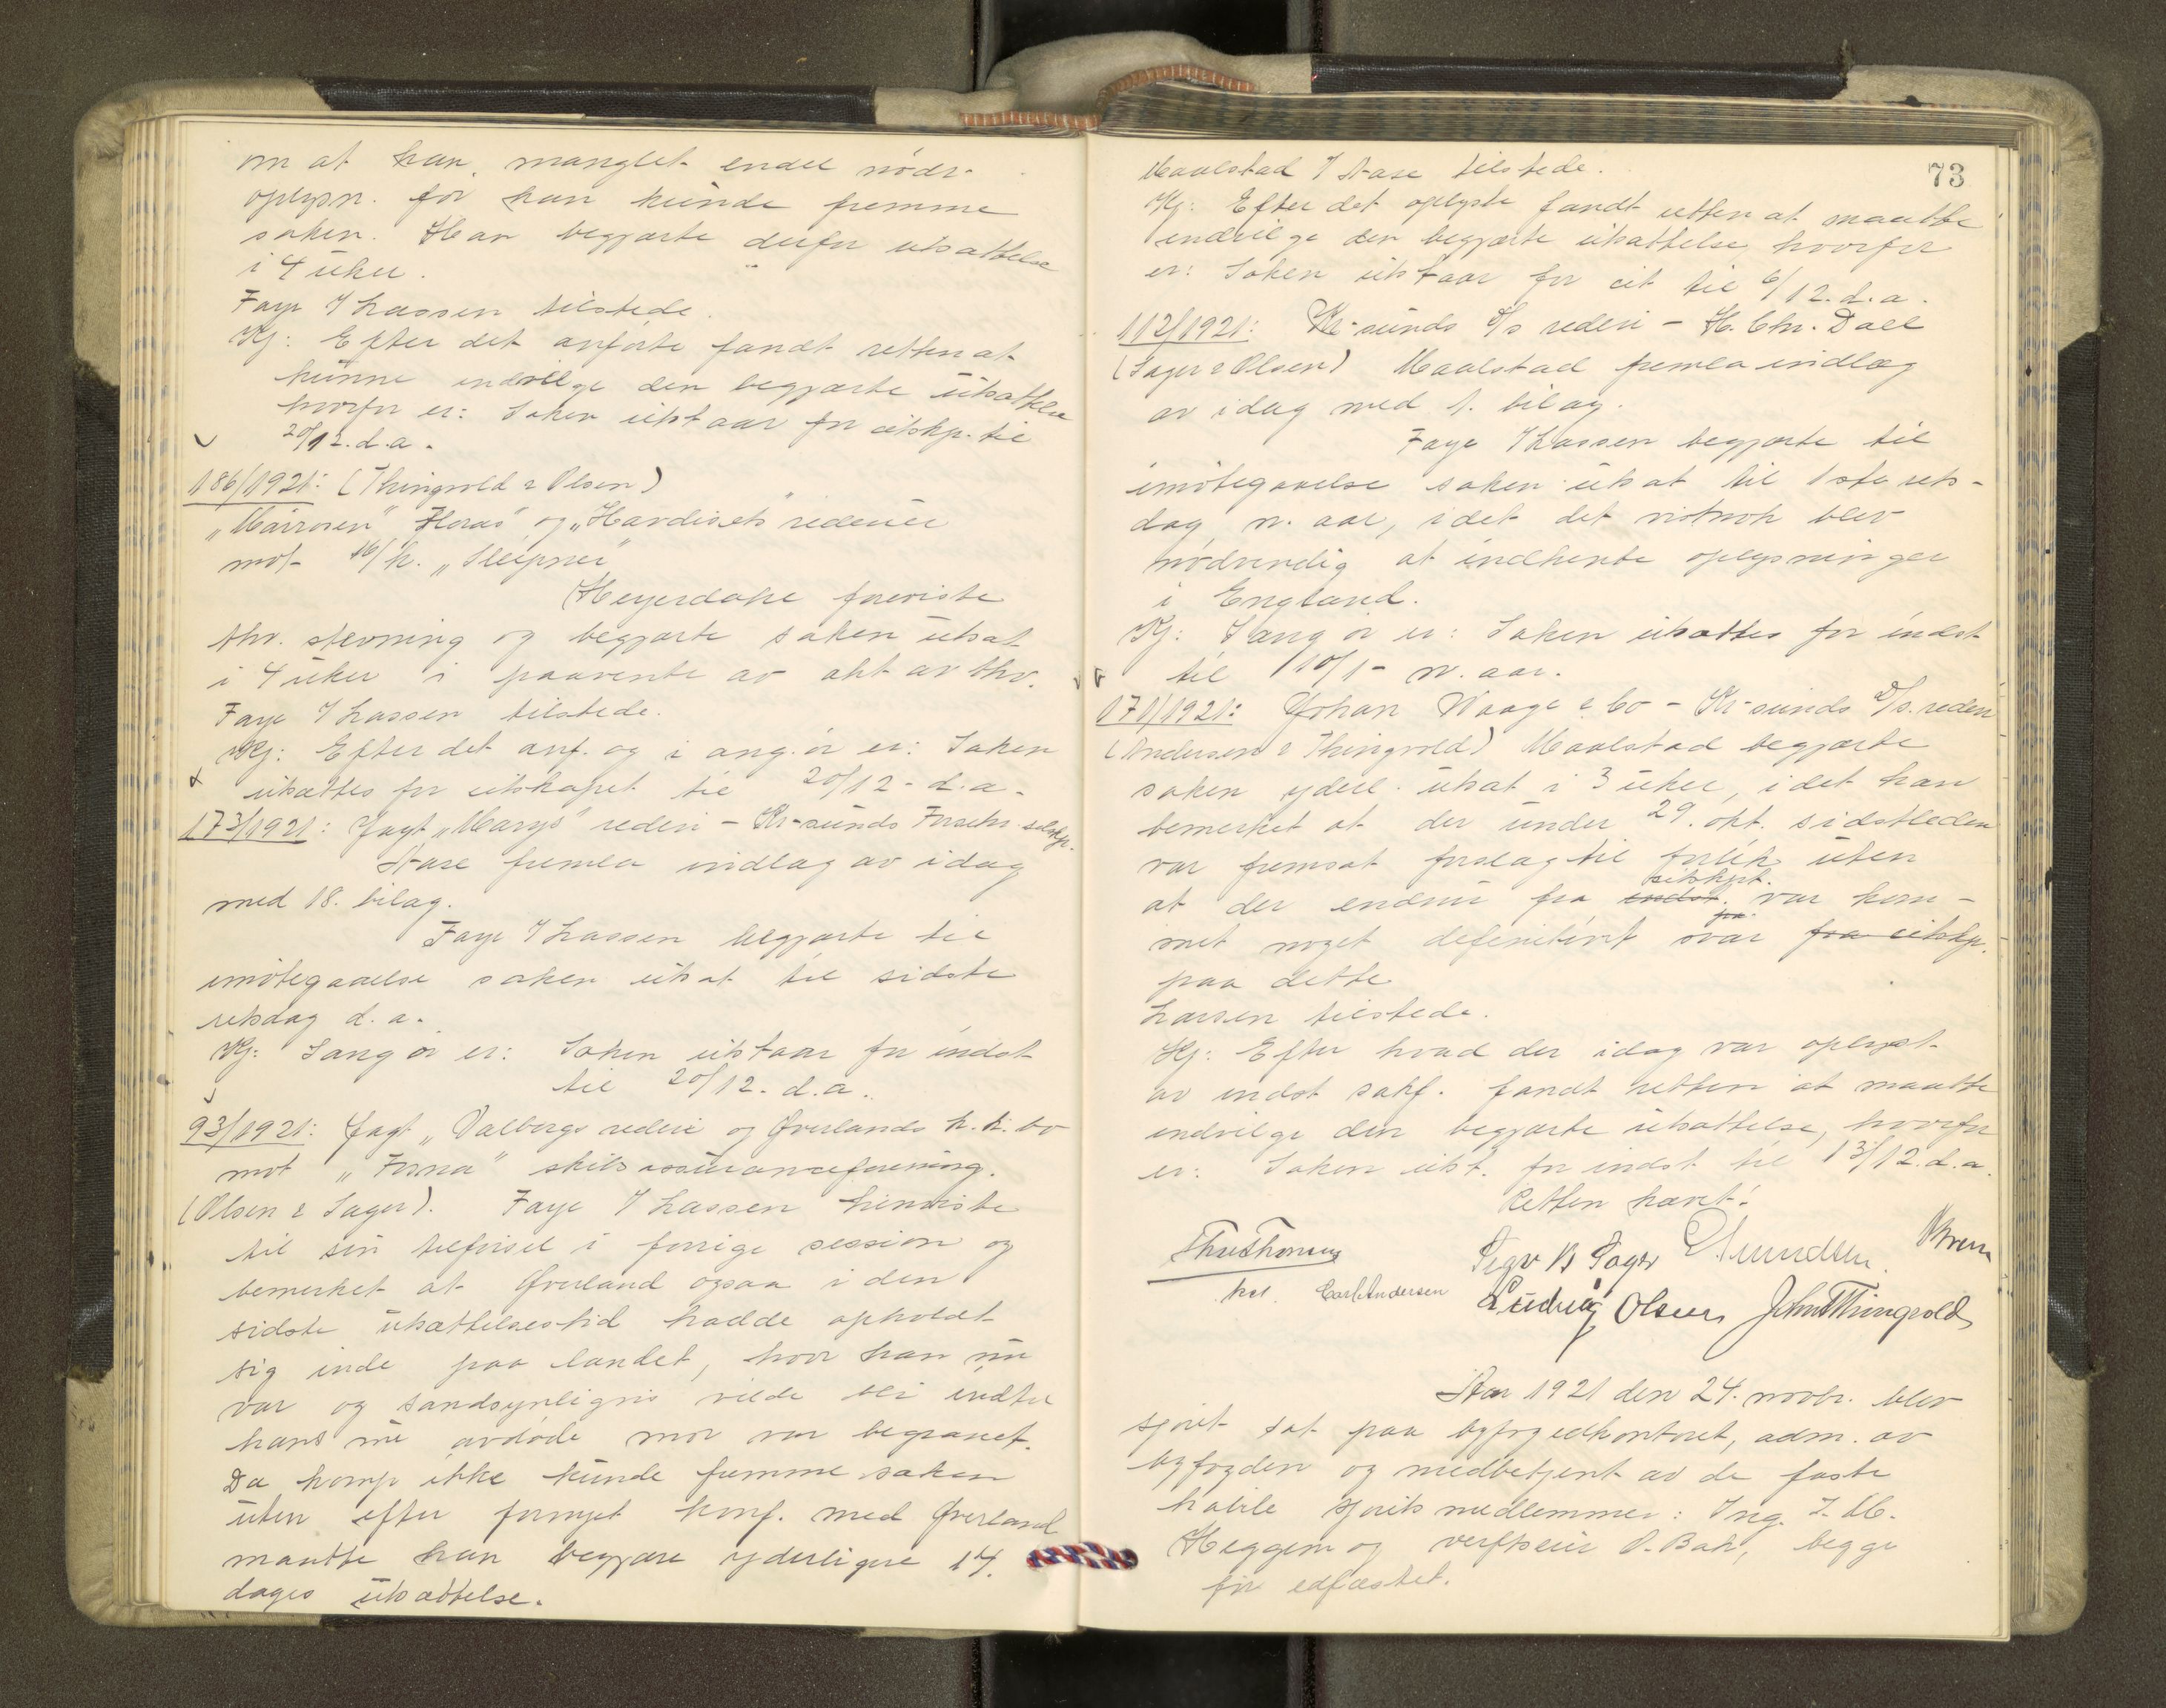 om at han manglet endel nödv.
oplysn. för han kunde fremme
saken. Han begjærte derfor utsættelse
i 4 uker.
Faye f Lassen tilstede.
Kj: Efter det anförte fandt retten at
kunne indvilge den begjærte utsættelse
hvorfor er: Saken utstaar for citskp. til
20/12. d.a.
186/1921: (Thingvold & Olsen)
„Marrosen" „Heras" og „Havdisets" rederier
mot M/k. „Sleipner"
Heyerdahl foreviste
thv. stevning og begjærte saken utsat
i 4 uker i paavente av akt av thv.
Faye f Lassen tilstede.
Kj: Efter det anf. og i ang. ör er: Saken
utsættes for citskapet til 20/12 - d.a.
173/1921: Jagt „Marys" rederi - Kr-sunds Forsikr. selskp.
Aase fremla indlæg av idag
med 18. bilag.
Faye f Lassen begjærte til
imötegaaelse saken utsat til sidste
retsdag d.a.
Kj: I ang ör er: Saken utstaar for indst
til 20/12. d.a.
93/1921: Jagt „Valborgs rederi og Överlands k.k. bo
mot „Fosna" skibsassuranceforening.
(Olsen & Sager). Faye f Lassen henviste
til sin tilförsel i forrige session og
bemerket at Överland ogsaa i den
sidste utsættelsestid hadde opholdt
sig inde paa landet, hvor han nu
var og sandsynligvis vilde bli indtil
hans nu avdöde mor var begravet.
Da komp. ikke kunde fremme saken
uten efter fornyet konf. med Överland
maatte han begjære yderligere 14.
dages utsættelse.
73
Maalstad f Aase tilstede.
Kj: Efter det oplyste fandt retten at maatte
indvilge den begjærte utsættelse, hvorfor
er: Saken utstaar for cit til 6/12. d.a.
112/1921: Kr-sunds D/s rederi - H. Chr. Dall
(Sager & Olsen) Maalstad fremla indlæg
av idag med 1. bilag.
Faye f Lassen begjærte til
imötegaaelse saken utsat til 1ste rets-
dag n. aar, idet det vistnok blev
nödvendig at indhente oplysninger
i England.
Kj: I ang ör er: Saken utsættes for indst
til 10/1 - n. aar.
171/1921: Johan Waage & Co - Kr-sunds D/s. rederi
(Andersen & Thingvold) Maalstad begjærte
saken yderl. utsat i 3 uker, idet han
bemerket at der under 29. okt. sidstleden
var fremsat forslag til forlik uten
at der endnu fra indst. citskpt. var kom-
met noget definitivt svar fra citskp.
paa dette.
Larsen tilstede.
Kj: Efter hvad der idag var oplyst
av indst sakf. fandt retten at maatte
indvilge den begjærte utsættelse, hvorfor
er: Saken utst. for indst til 13/12. d.a.
Retten hævet!
Carl Andersen
Sigv B Sager
Ludvig Olsen John Thingvold
Aar 1921 den 24. novbr. blev
sjöret sat paa byfogedkontoret, adm. av
byfogden og medbetjent av de faste
habile sjöretsmedlemmer: Ing. I. M.
Heggem og verftseier O. Bak, begge
för edfæstet.